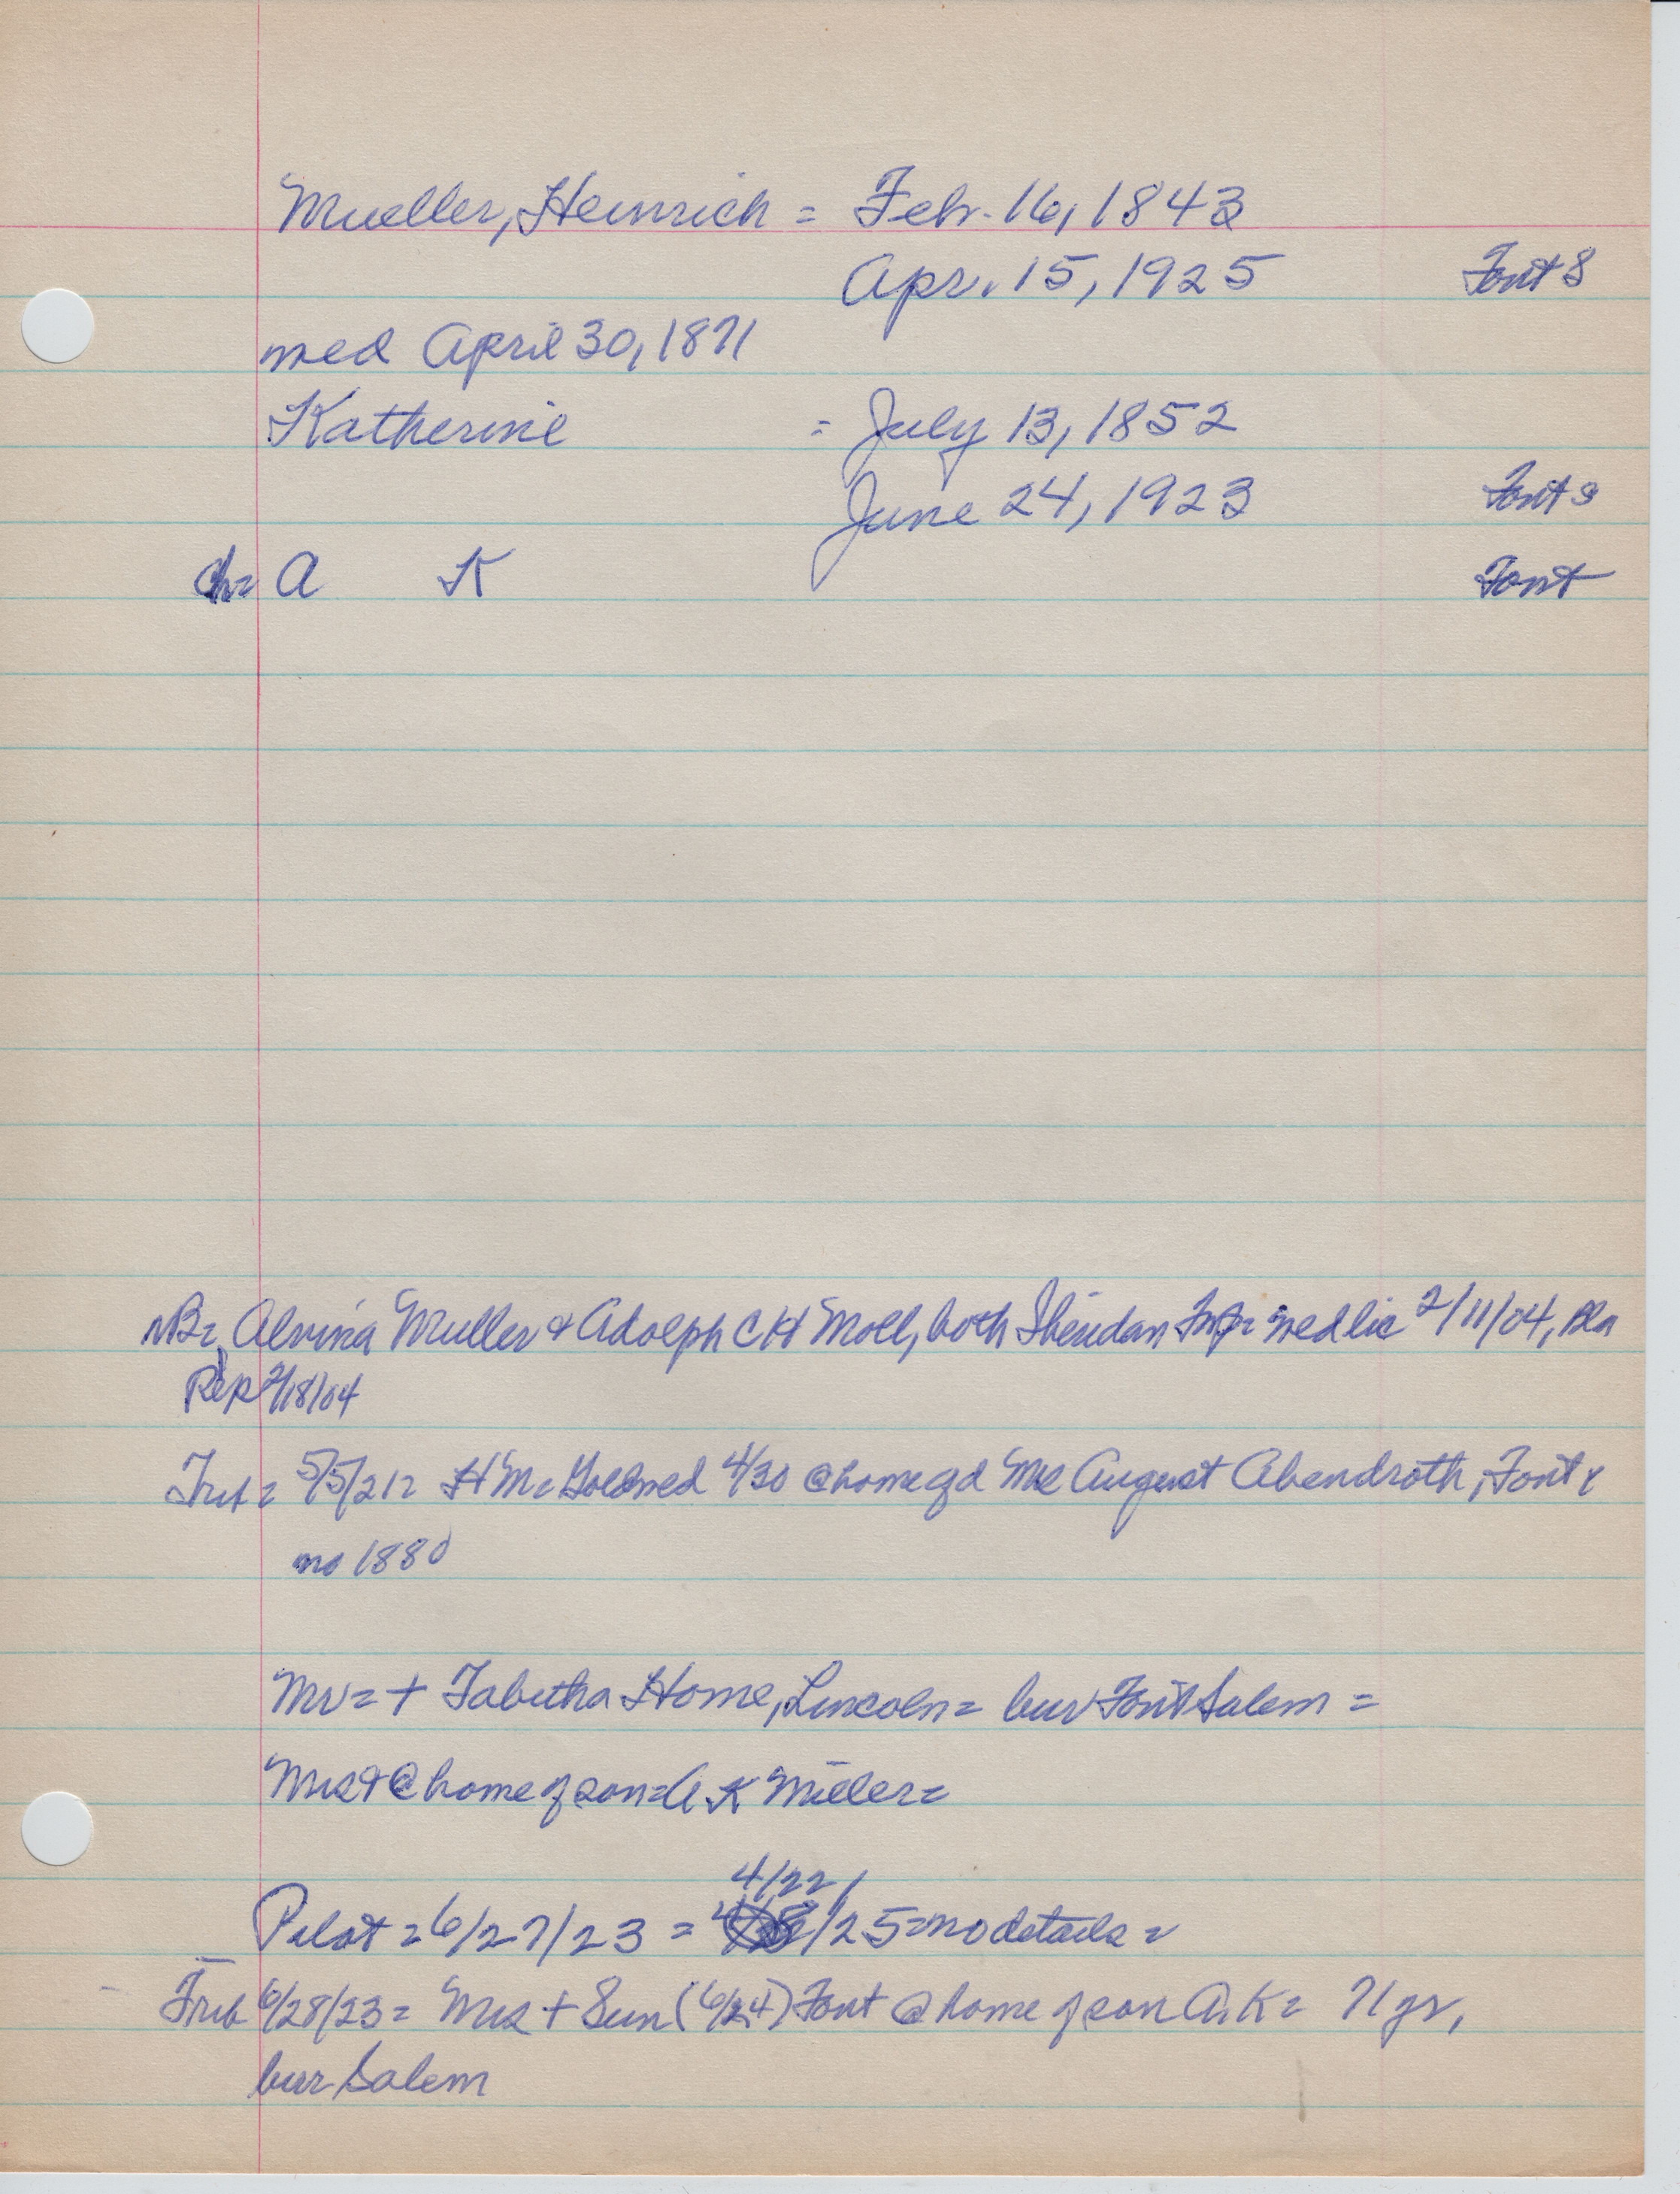 Mueller, Heinrich = Feb. 16, 1843
Apr. 15, 1925 Font S
med April 30, 1871
Katherine = July 13, 1852
June 24, 1923 Font S
ch= A K Font
NB= Alvina Muller & Adolph C H Moll, both Sheridan Twp= med lic 2/11/04, Bla
Rep 2/18/04
Trib = 5/5/21= H M= Gold med 4/30 @ home of d Mrs August Abendroth, Font
no 1880
Mr = + Tabitha Home, Lincoln = bur Font Salem =
Mrs + @ home of son = A K Miller =
4/22/
Pilot = 6/27/23 = 25 = no details =
Trib 6/28/23 = Mrs + Sun (6/24) Font @ home of son A. K = 71 yr,
bur Salem